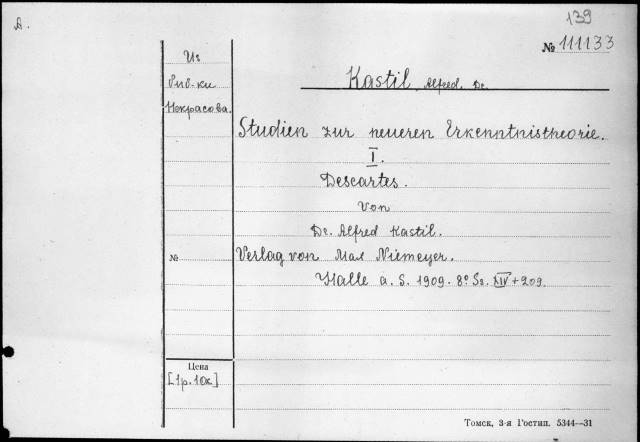 139
А.
№ 111133
Из
биб-ки
Некрасова.
Kastil Alfred. Dr.
Studien zur neueren Erkenntnistheorie.
I.
Descartes.
Von
Dr. Alfred Kastil.
№
Verlag von Max Niemeyer.
Halle a. S. 1909. 8° Ss. XIV + 209.
Цена
[1р.10к.]
Томск, 3-я Гостип. 5344—31